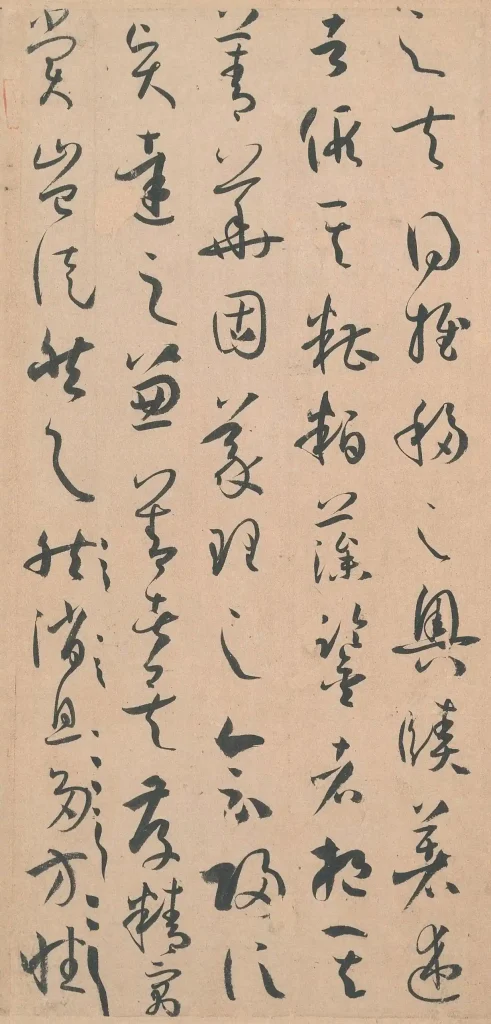 之夫得推移之奧賾著述
者假其糟粕藻鑒者挹其
菁華固義理之會歸信
賢達之兼善者矣存精寓
賞豈徒然與然消息多方性